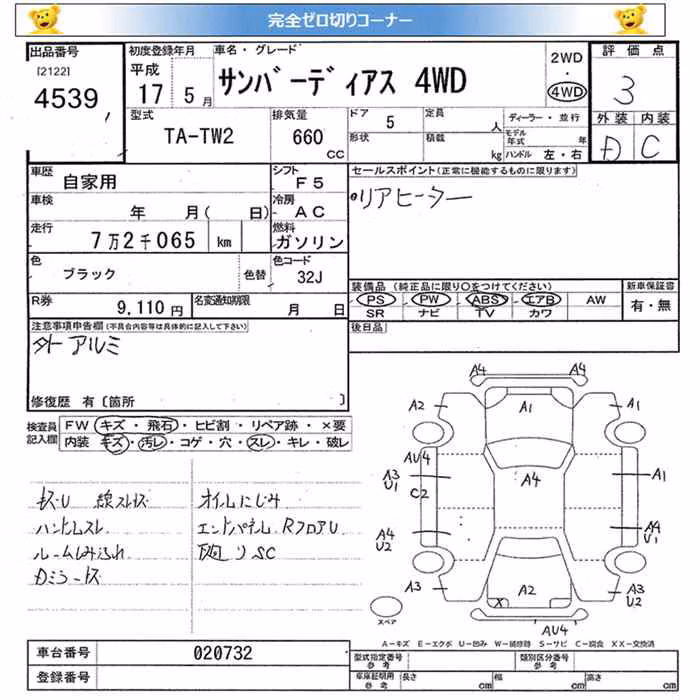 完全ゼロ切りコーナー
出品番号
[2122]
4539
初度登録年月
平成
17 5 月
車名・グレード
サンバーディアス 4WD
2WD
・
4WD
評価点
3
外装 内装
D C
型式
TA-TW2
排気量
660
CC
ドア 5
形状
定員 人
積載 kg
ディーラー・並行
モデル年式 年
ハンドル 左・右
車歴
自家用
シフト
F5
車検
年 月( 日)
冷房
AC
走行
7万2千065 km
燃料
ガソリン
色
ブラック
色替
色コード
32J
R券
9,110 円
名変通知期限
月 日
セールスポイント(正常に機能するものに限ります)
リアヒーター
装備品 (純正品に限り○をつけてください)
新車保証書
PS PW ABS エアB AW
SR ナビ TV カワ
有・無
後日品
注意事項申告欄(不具合内容等は具体的に記入して下さい)
外 アルミ
修復歴 有〔箇所 〕
検査員記入欄
FW キズ・飛石・ヒビ割・リペア跡・×要
内装 キズ・汚レ・コゲ・穴・スレ・キレ・破レ
オイルにじみ
ハンドルスレ
エンドパネル RフロアU
ルームしみ汚れ
SC
Dミラーキズ
A4 A4
A2 A1 A1
AU4
A3 A4 A1
U1 C2
A4 A4
U2 U1
A3 A2 A3
X U2
AU4
スペア
A-キズ E-エクボ U-凹み W-補修跡 S-サビ C-腐食 XX-交換済
車台番号
020732
登録番号
型式指定番号
参考
類別区分番号
参考
車庫証明用
参考
長さ cm
幅 cm
高さ cm